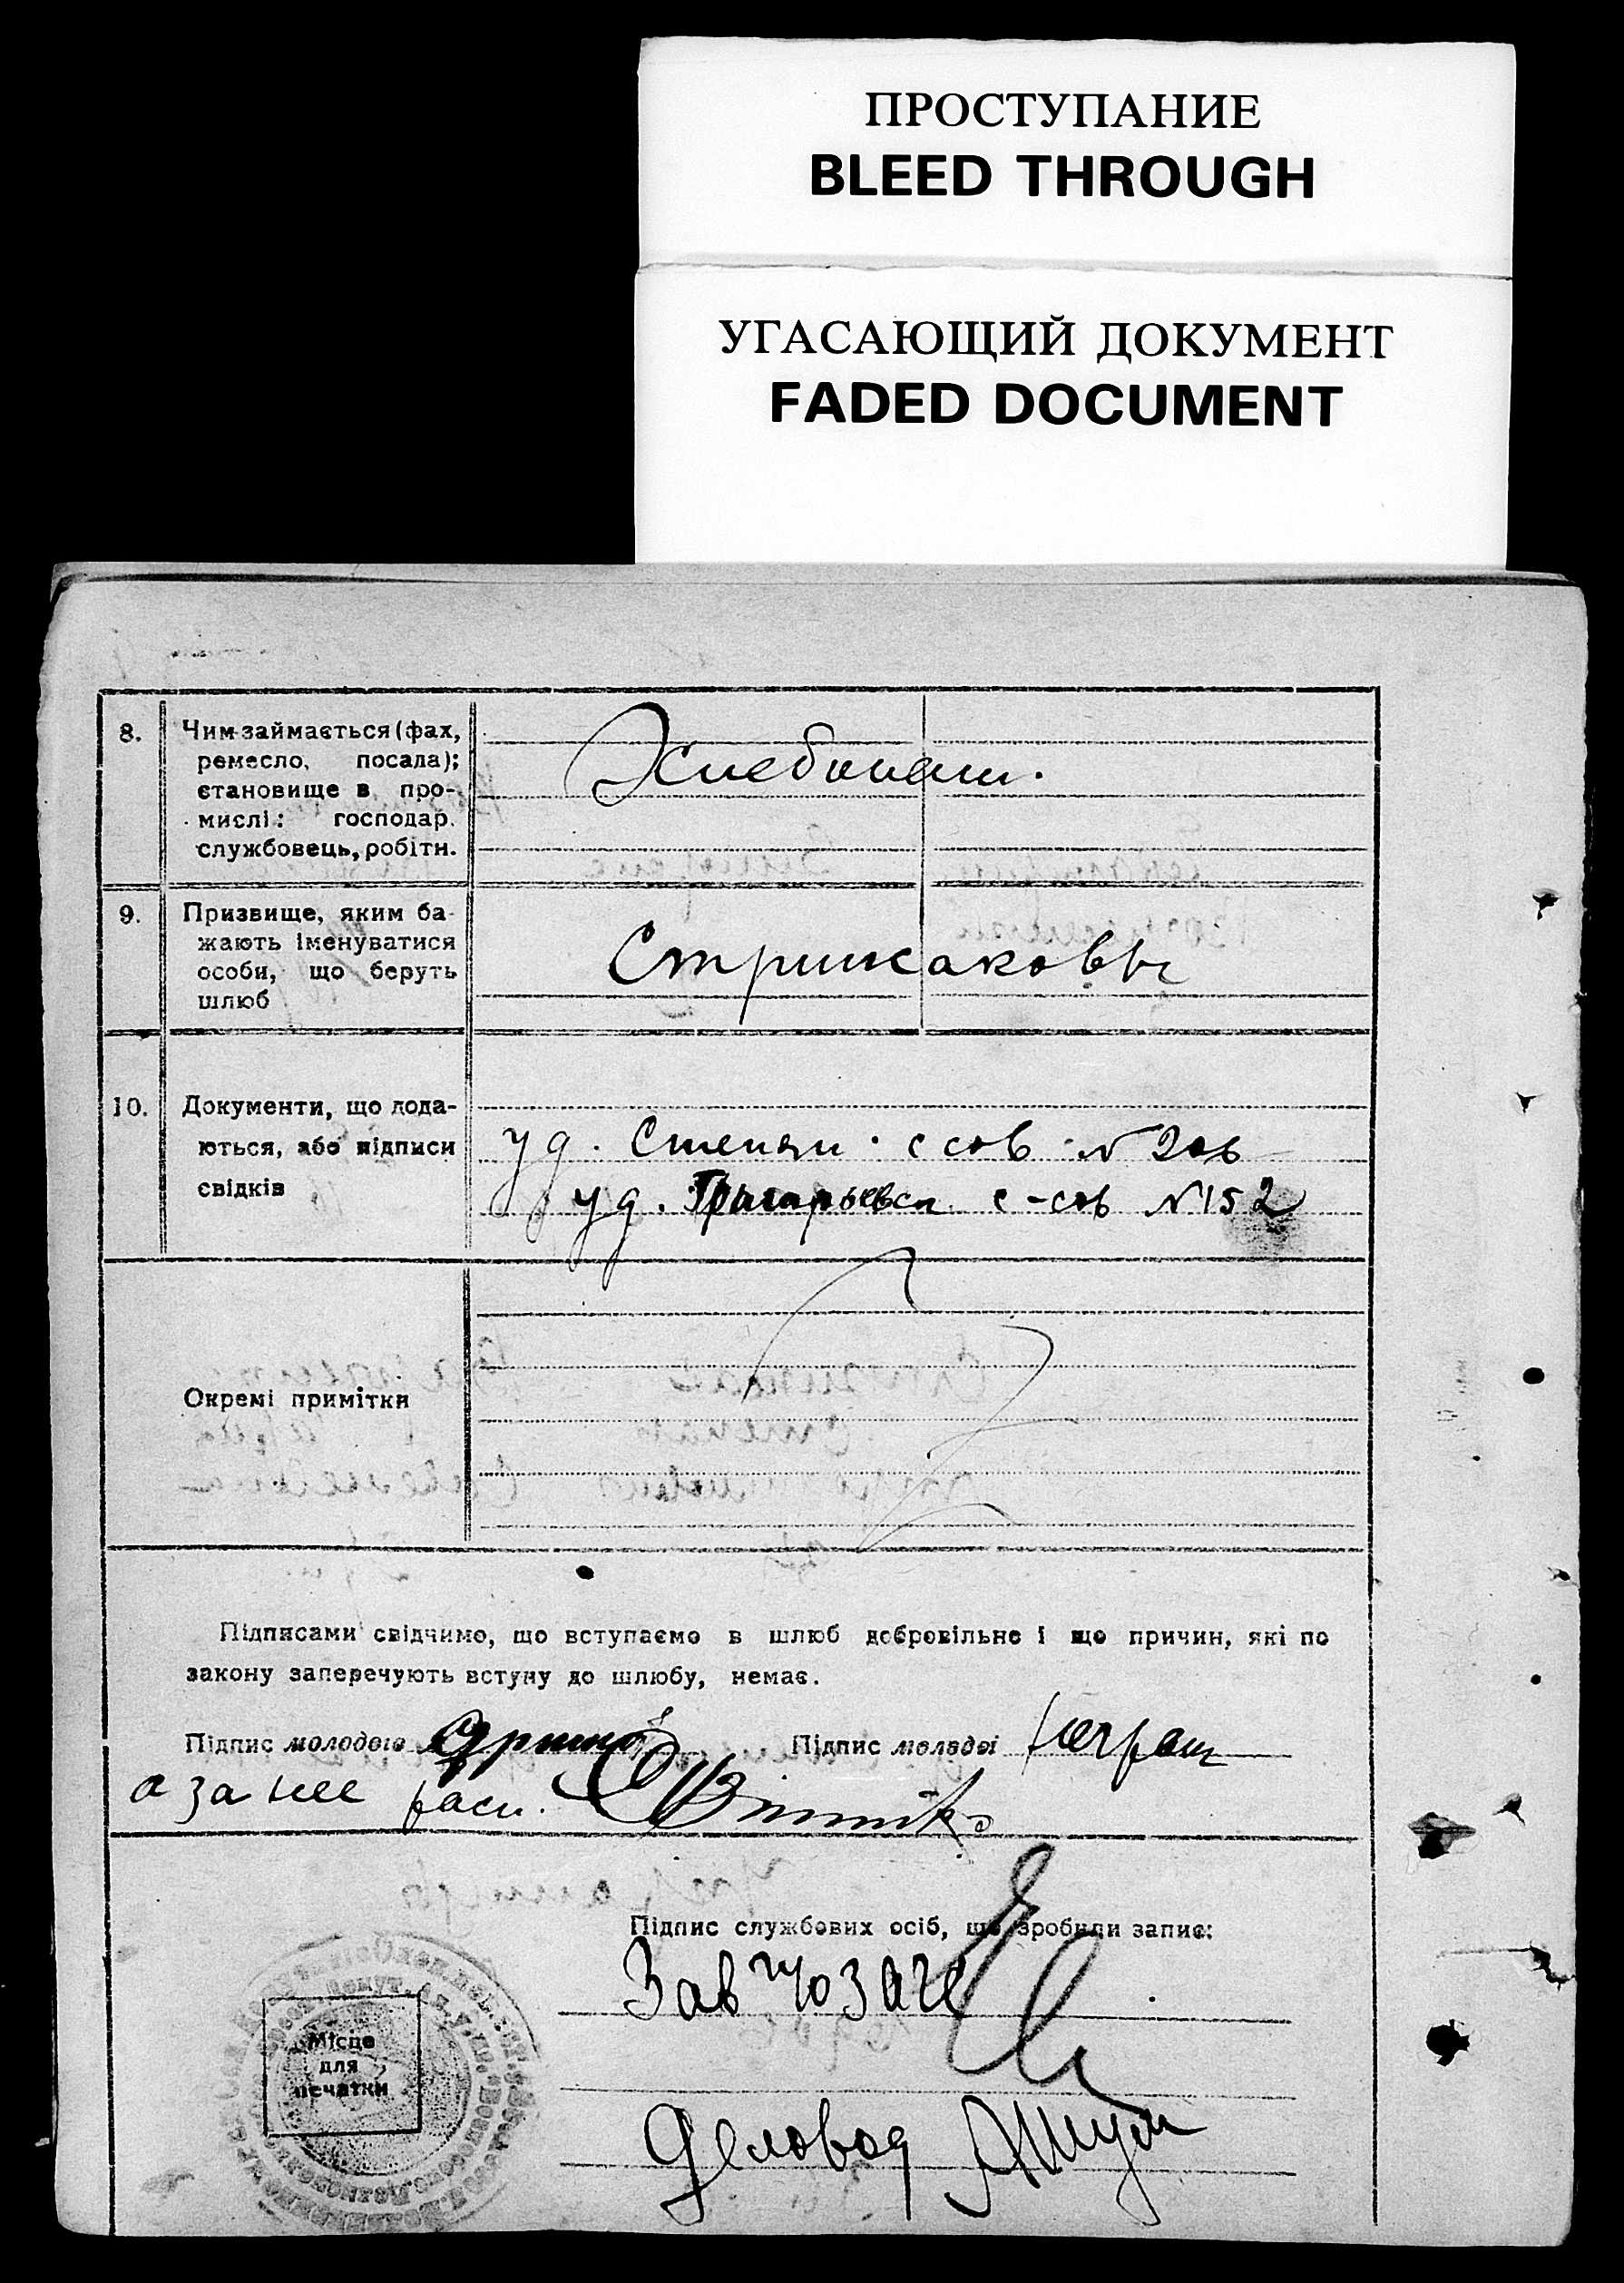 ПРОСТУПАНИЕ
BLEED THROUGH
УГАСАЮЩИЙ ДОКУМЕНТ
FADED DOCUMENT
8. Чим займається (фах,
ремесло, посада);
становище в про-
мислі: господар.
службовець, робітн.
Хлебопаш.
9. Призвище, яким ба-
жають іменуватися
особи, що беруть
шлюб
Стрижаковы
10. Документи, що дода-
ються, або підписи
свідків
уд. Степан. с сов. N 206
уд. с-сов N 152
Окремі примітки
Підписами свідчимо, що вступаємо в шлюб добровільно і що причин, які по
закону заперечують вступу до шлюбу, немає.
Підпис молодого Підпис молодої
а за нее расп.
Підпис службових осіб, що зробили запис:
Зав
Місце
для
печатки
Деловод